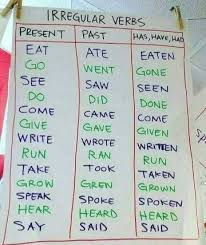 IRREGULAR VERBS
PRESENT PAST HAS, HAVE, HAD
EAT ATE EATEN
GO WENT GONE
SEE SAW SEEN
DO DID DONE
COME CAME COME
GIVE GAVE GIVEN
WRITE WROTE WRITTEN
RUN RAN RUN
TAKE TOOK TAKEN
GROW GREW GROWN
SPEAK SPOKE SPOKEN
HEAR HEARD HEARD
SAY SAID SAID